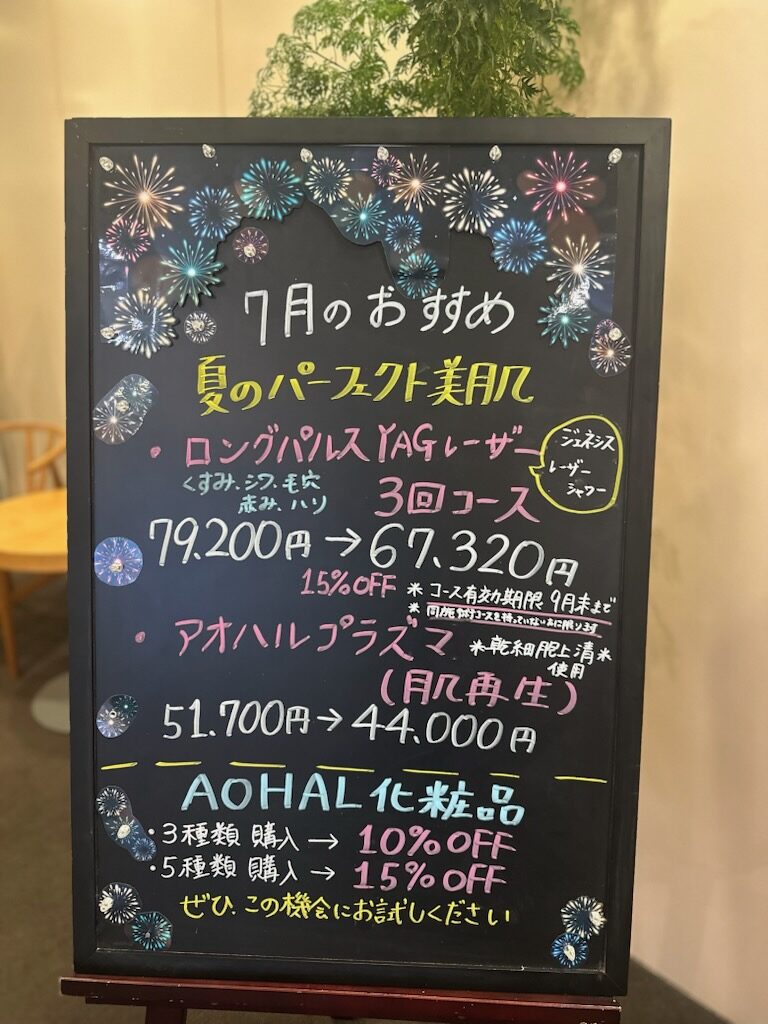 7月のおすすめ
夏のパーフェクト美肌
・ロングパルスYAGレーザー
ジェネシス
レーザー
シャワー
くすみ、シワ、毛穴
赤み、ハリ
3回コース
79.200円→67.320円
15%OFF
＊コース有効期限 9月末まで
・アオハルプラズマ
＊乾細胞上清＊
使用
(肌再生)
51.700円→44.000円
AOHAL化粧品
・3種類 購入→ 10%OFF
・5種類 購入→ 15%OFF
ぜひ、この機会にお試しください